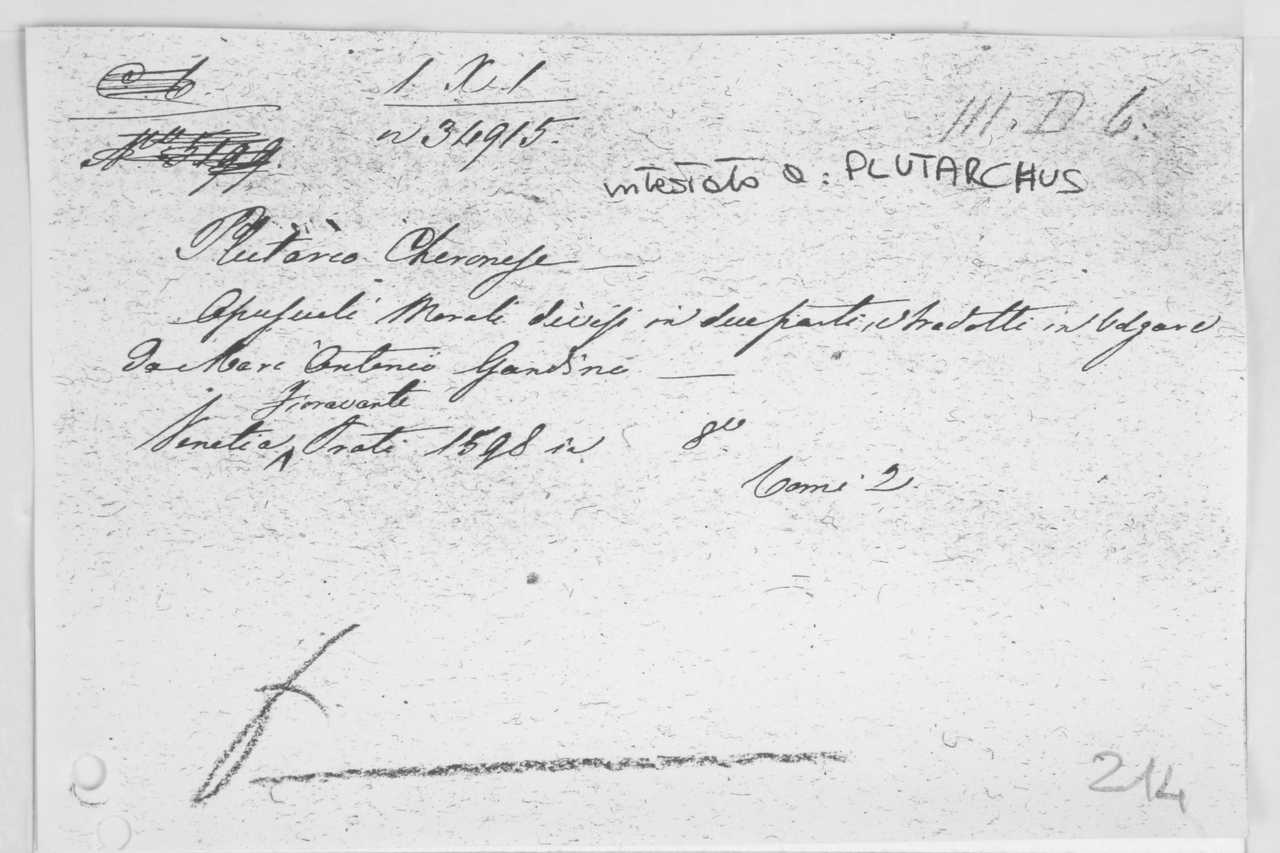 1. X. 1
n 34915.
III. D 6.
intestato a: PLUTARCHUS
Plutarco Cheronese
Opusculi Morali divisi in due parti, e tradotti in Volgare
Da Marc Antonio Gandino
Fioravante
Venetia Prati 1598 in 8º
Tomi 2.
214